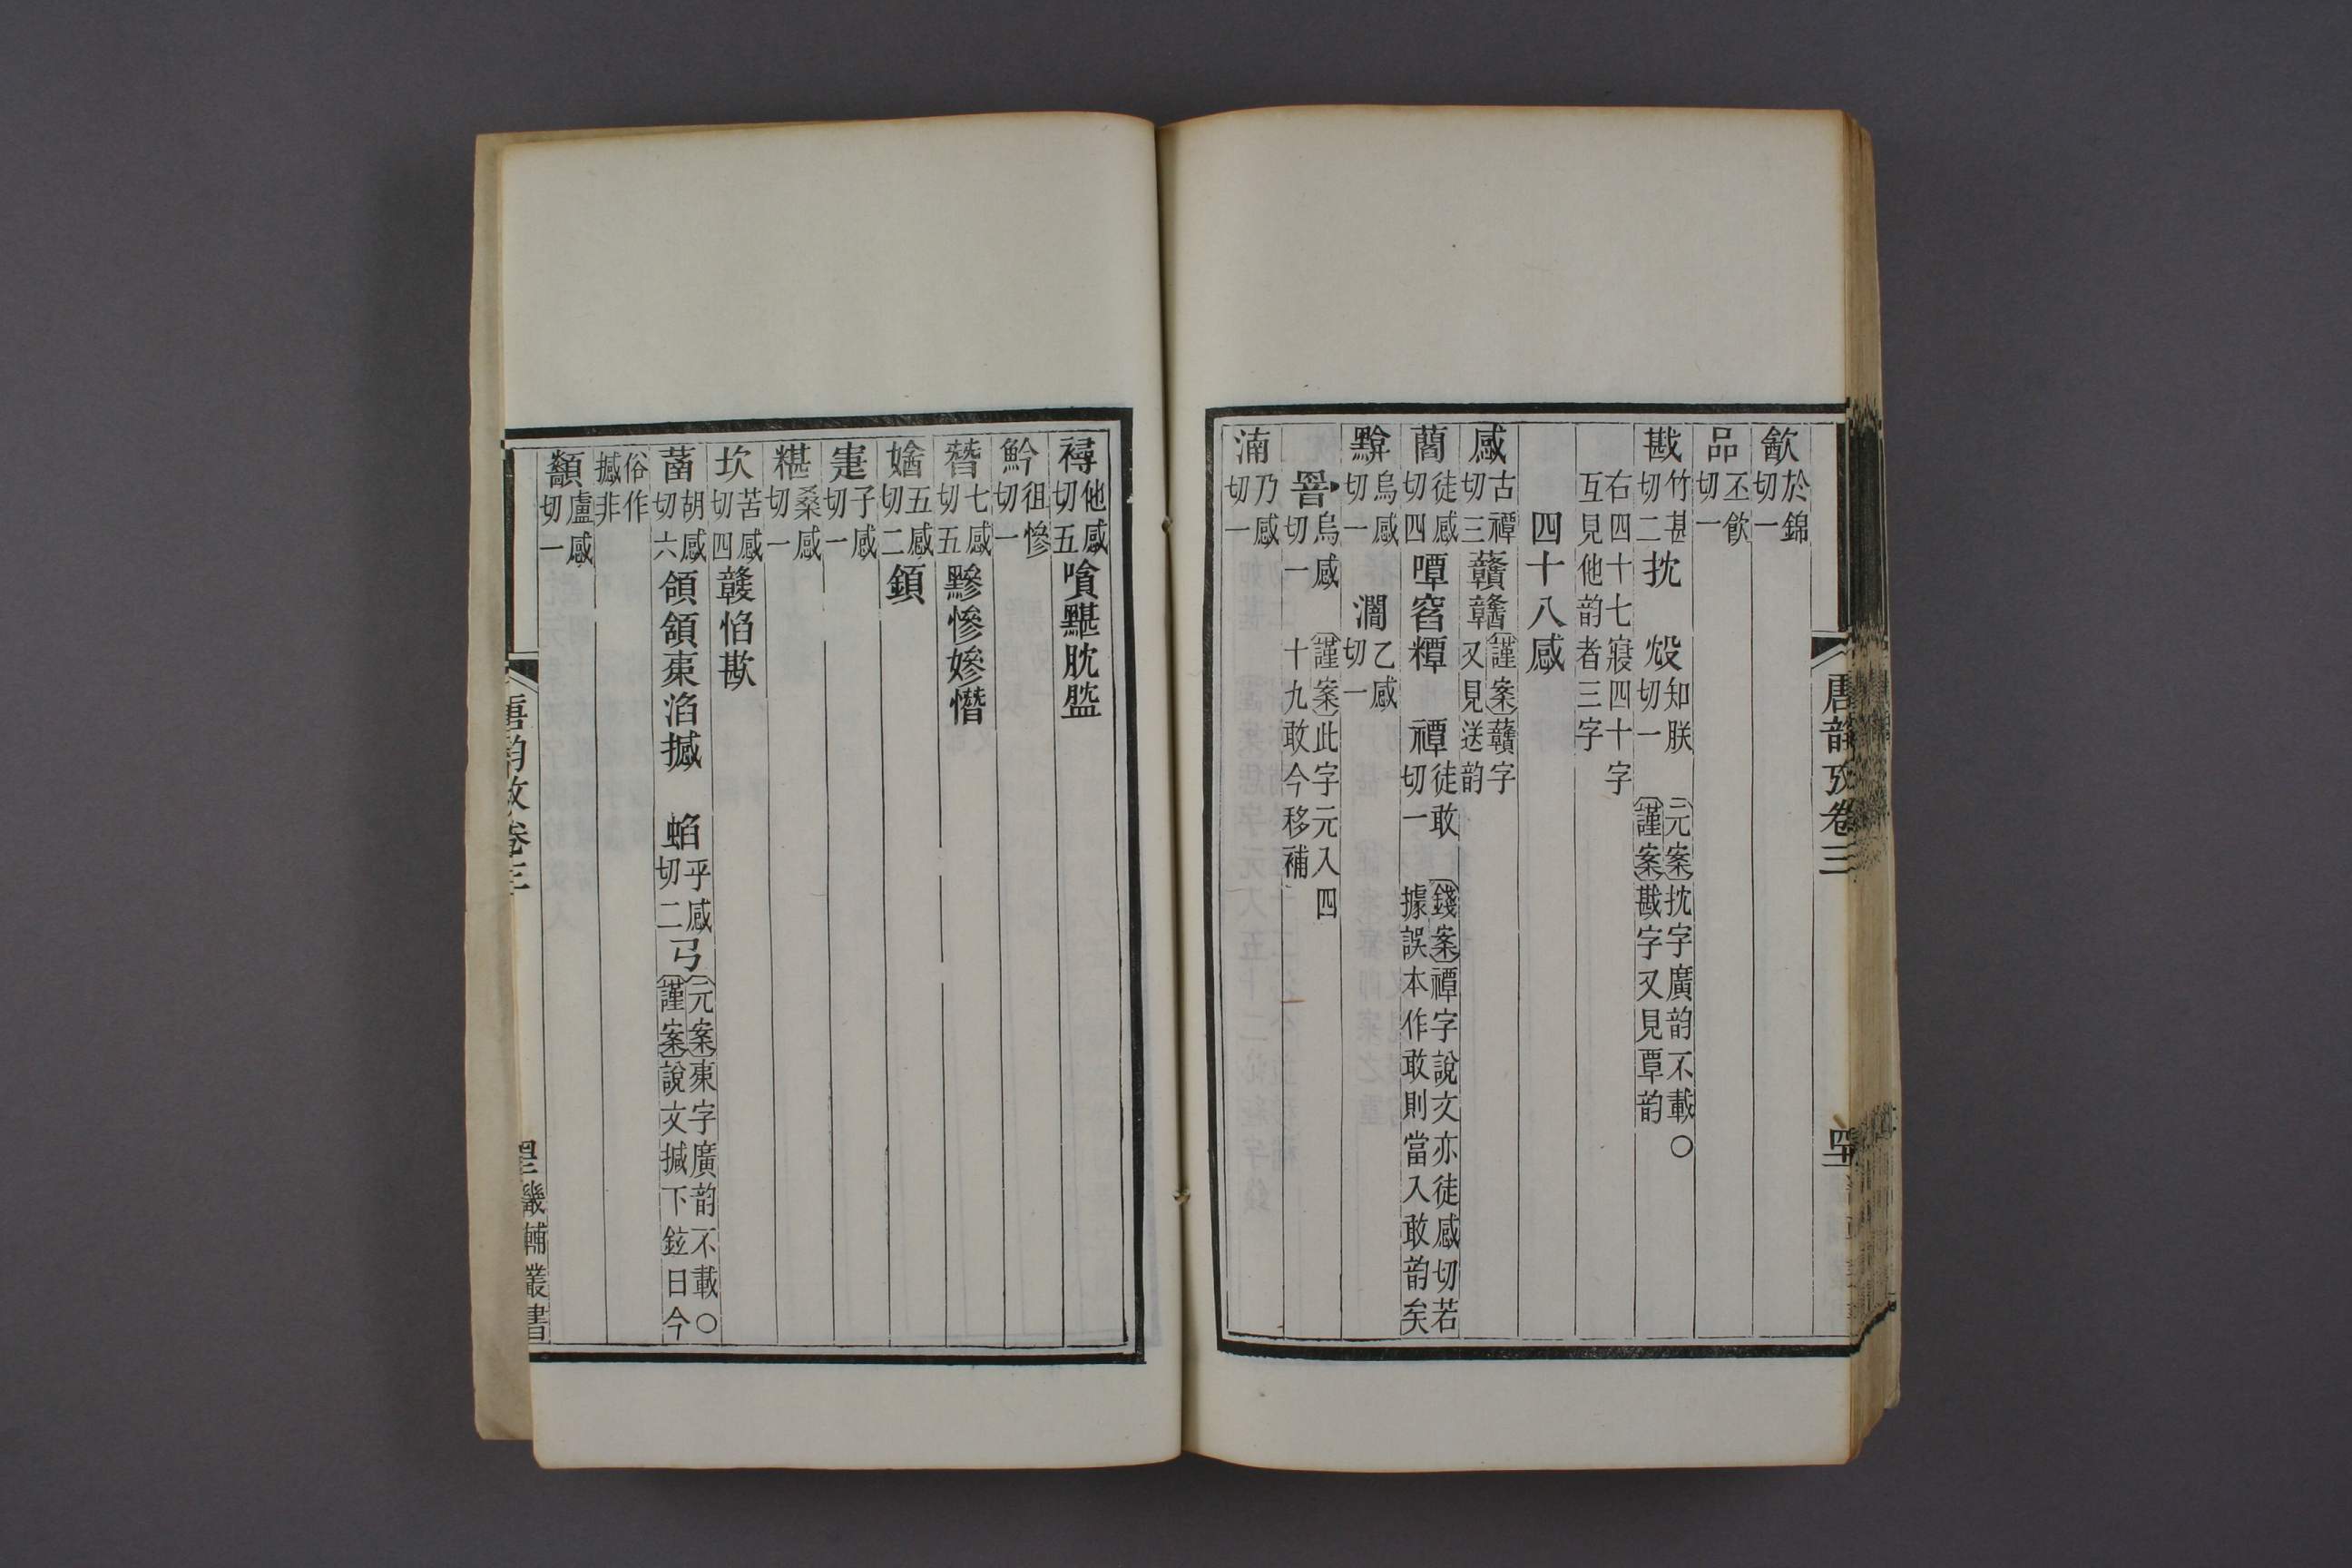 唐韵攷卷三
㱃於錦切一
品丕飮切一
戡竹甚切二㧈 㱽知朕切一 元案㧈字廣韵不載○謹案戡字又見覃韵
右四十七寑四十字互見他韵者三字
四十八感
感古禫切三贛謹案贛字又見送韵
萏徒感切四嘾窞糣 禫徒敢切一 錢案禫字說文亦徒感切若據誤本作敢則當入敢韵矣
黭烏感切一 濶乙感切一
烏感切一 謹案此字元入四十九敢今移補
湳乃感切一
他感切五嗿黮肬醓
魿徂慘切一
朁七感切五黲慘嬠憯
媕五感切二顉
寁子感切一
糂桑感切一
坎苦感切四竷惂歁
菡胡感切六頜頷㯻淊撼 蜭乎感切二𢎘元案㯻字廣韵不載○謹案說文撼下鉉曰今
俗作撼非
顲盧感切一
唐韵攷卷三
畿輔叢書